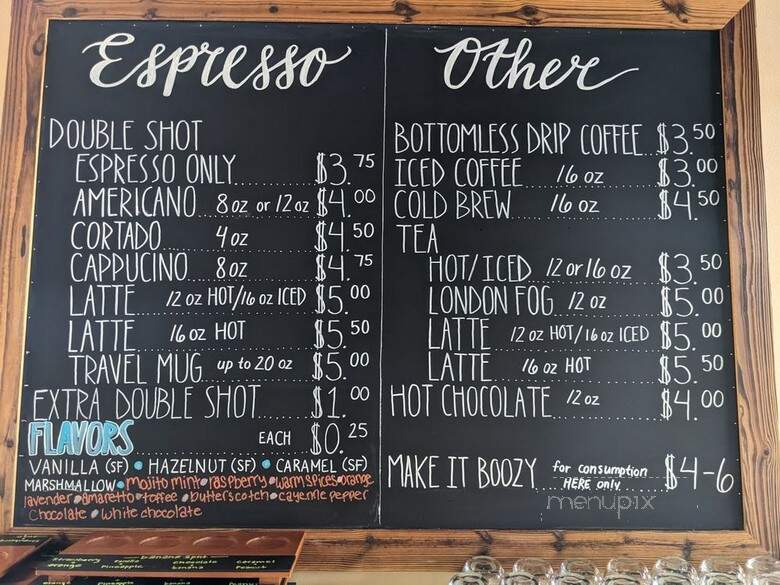 Espresso
DOUBLE SHOT
ESPRESSO ONLY $3.75
AMERICANO 8 oz or 12 oz $4.00
CORTADO 4 oz $4.50
CAPPUCINO 8 oz $4.75
LATTE 12 oz HOT/16 oz ICED $5.00
LATTE 16 oz HOT $5.50
TRAVEL MUG up to 20 oz $5.00
EXTRA DOUBLE SHOT $1.00
FLAVORS EACH $0.25
VANILLA (SF) • HAZELNUT (SF) • CARAMEL (SF)
MARSHMALLOW • mojito mint • raspberry • warm spices • orange
lavender • amaretto • toffee • butterscotch • cayenne pepper
chocolate • white chocolate
Other
BOTTOMLESS DRIP COFFEE $3.50
ICED COFFEE 16 oz $3.00
COLD BREW 16 oz $4.50
TEA
HOT/ICED 12 or 16 oz $3.50
LONDON FOG 12 oz $5.00
LATTE 12 oz HOT/16 oz ICED $5.00
LATTE 16 oz HOT $5.50
HOT CHOCOLATE 12 oz $4.00
MAKE IT BOOZY for consumption HERE only $4-6
menupix